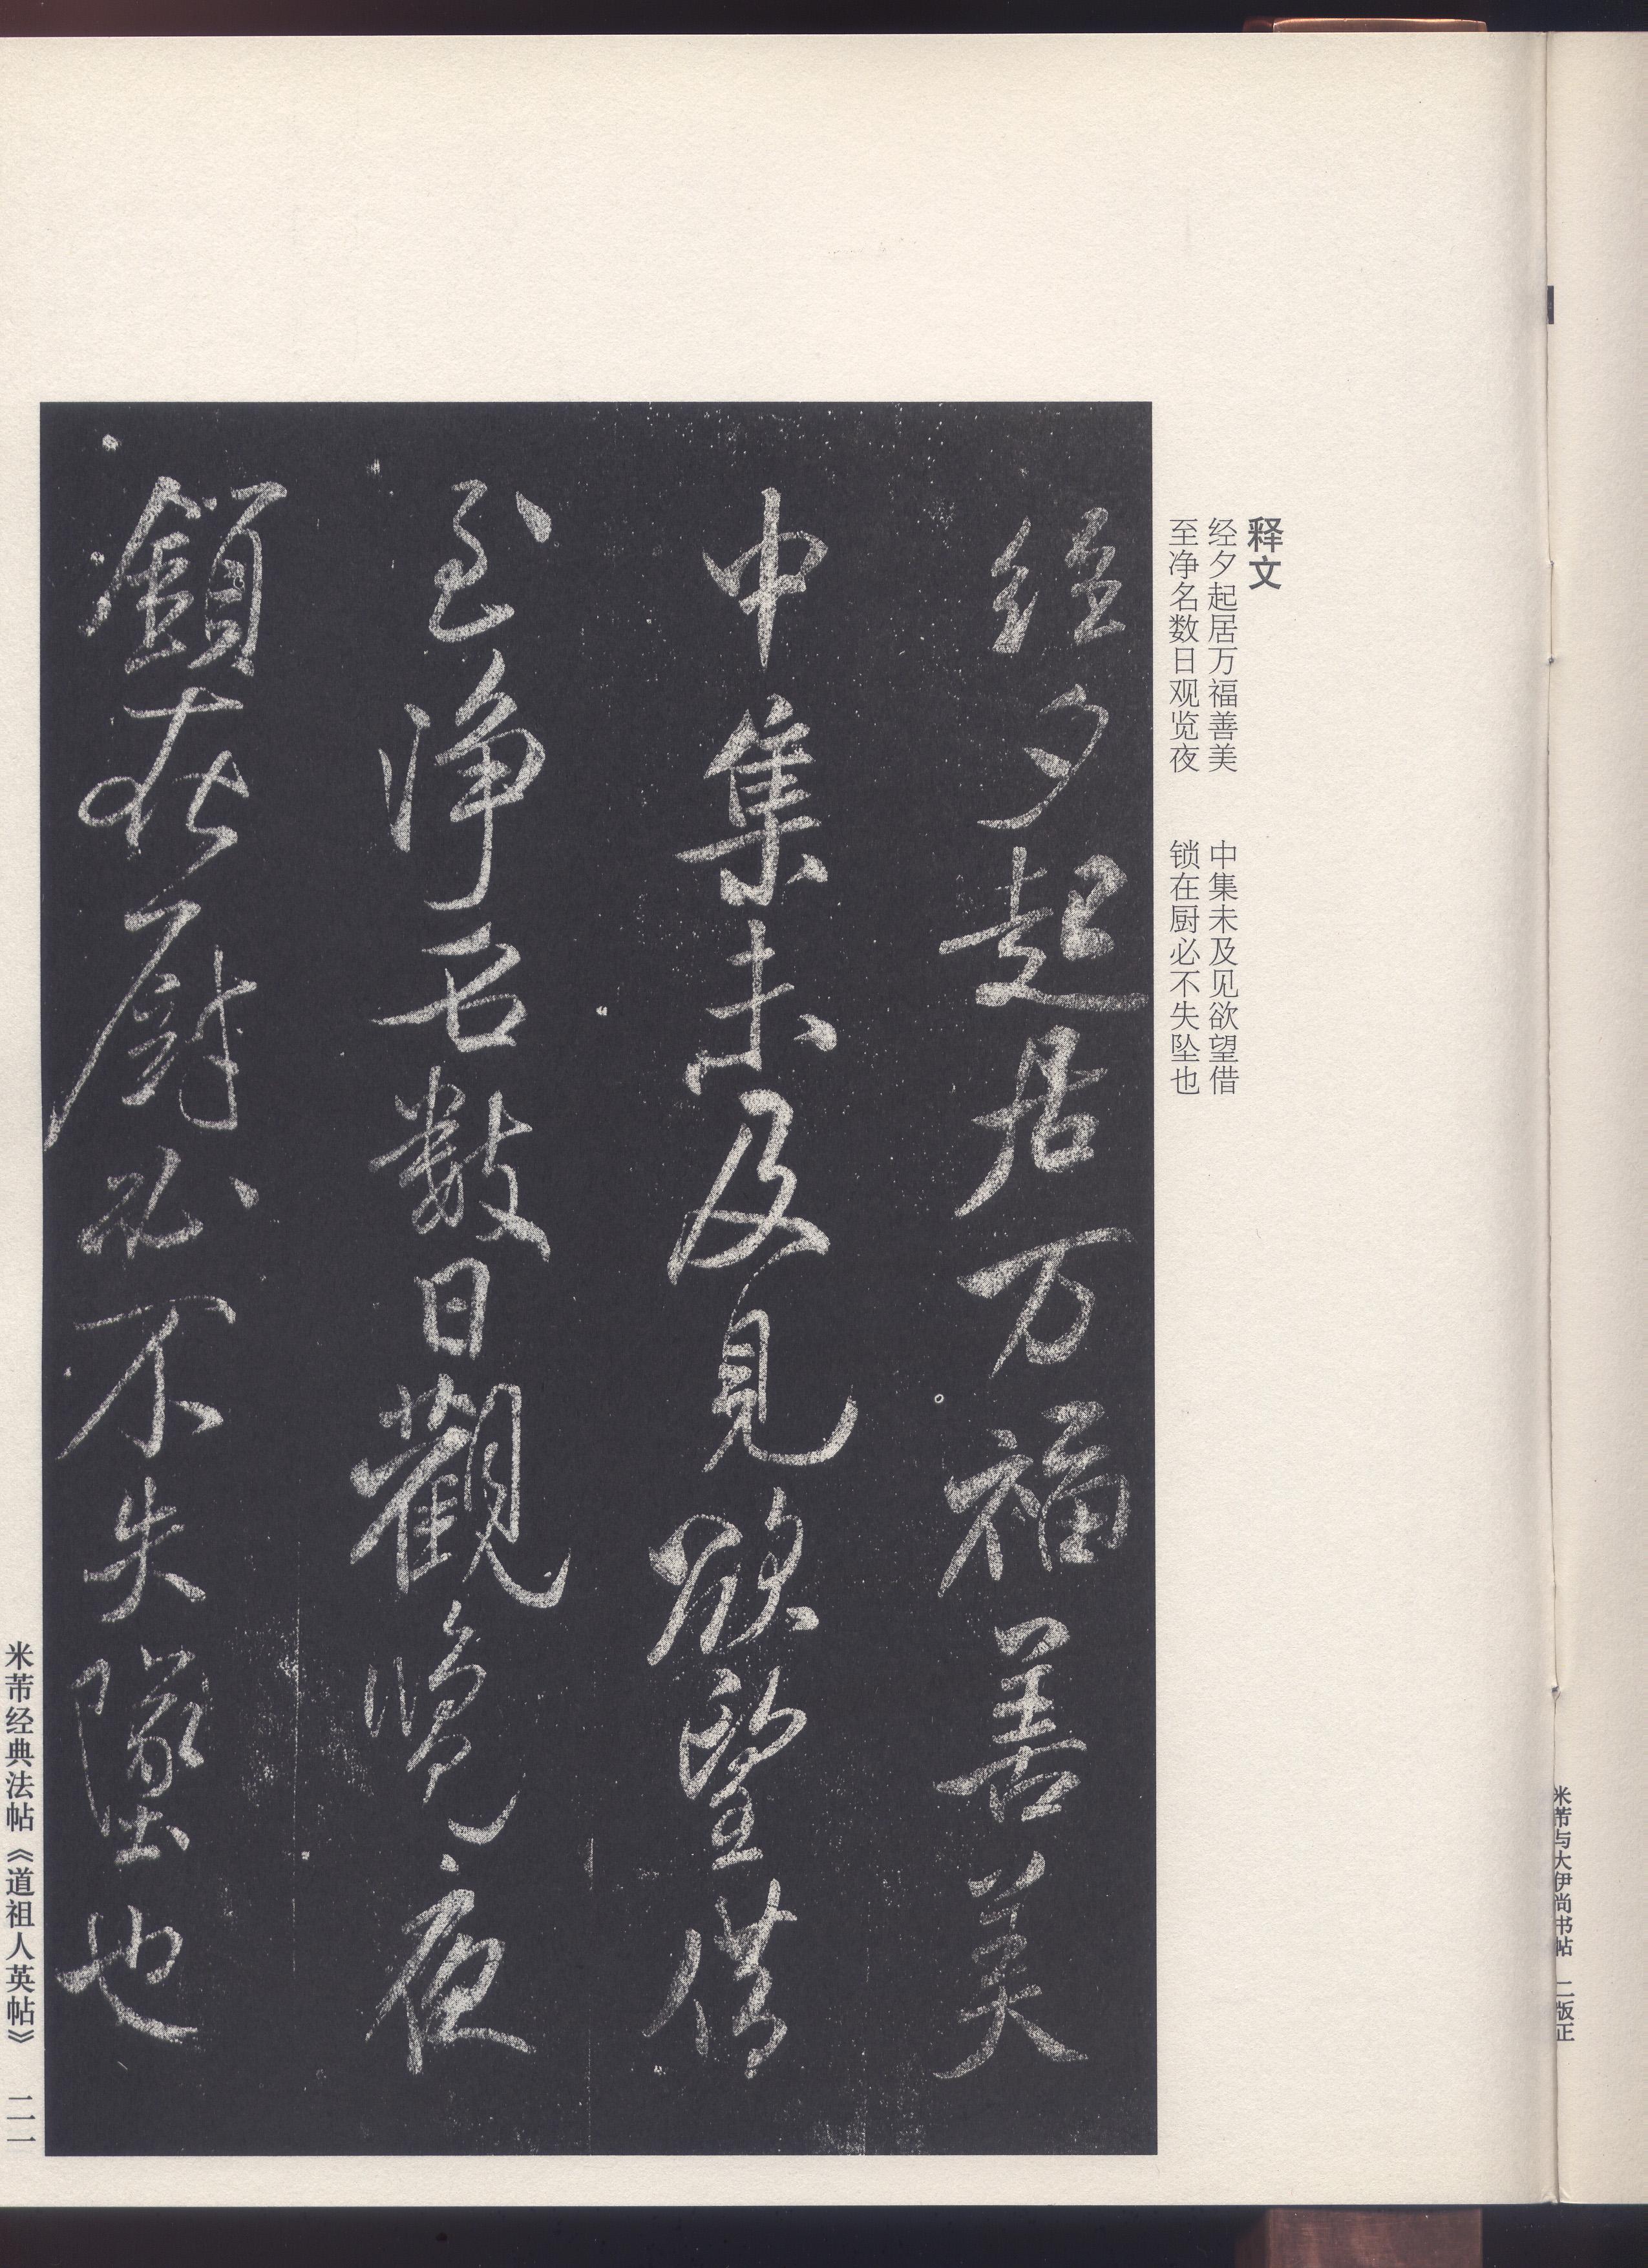 米芾与大伊尚书帖 二版正
释文
经夕起居万福善美 中集未及见欲望借
至净名数日观览夜 锁在厨必不失坠也
經夕起居万福善美
中集未及見欲望借
至淨名數日觀覽夜
鎖在厨必不失墜也
米芾经典法帖《道祖人英帖》 二一